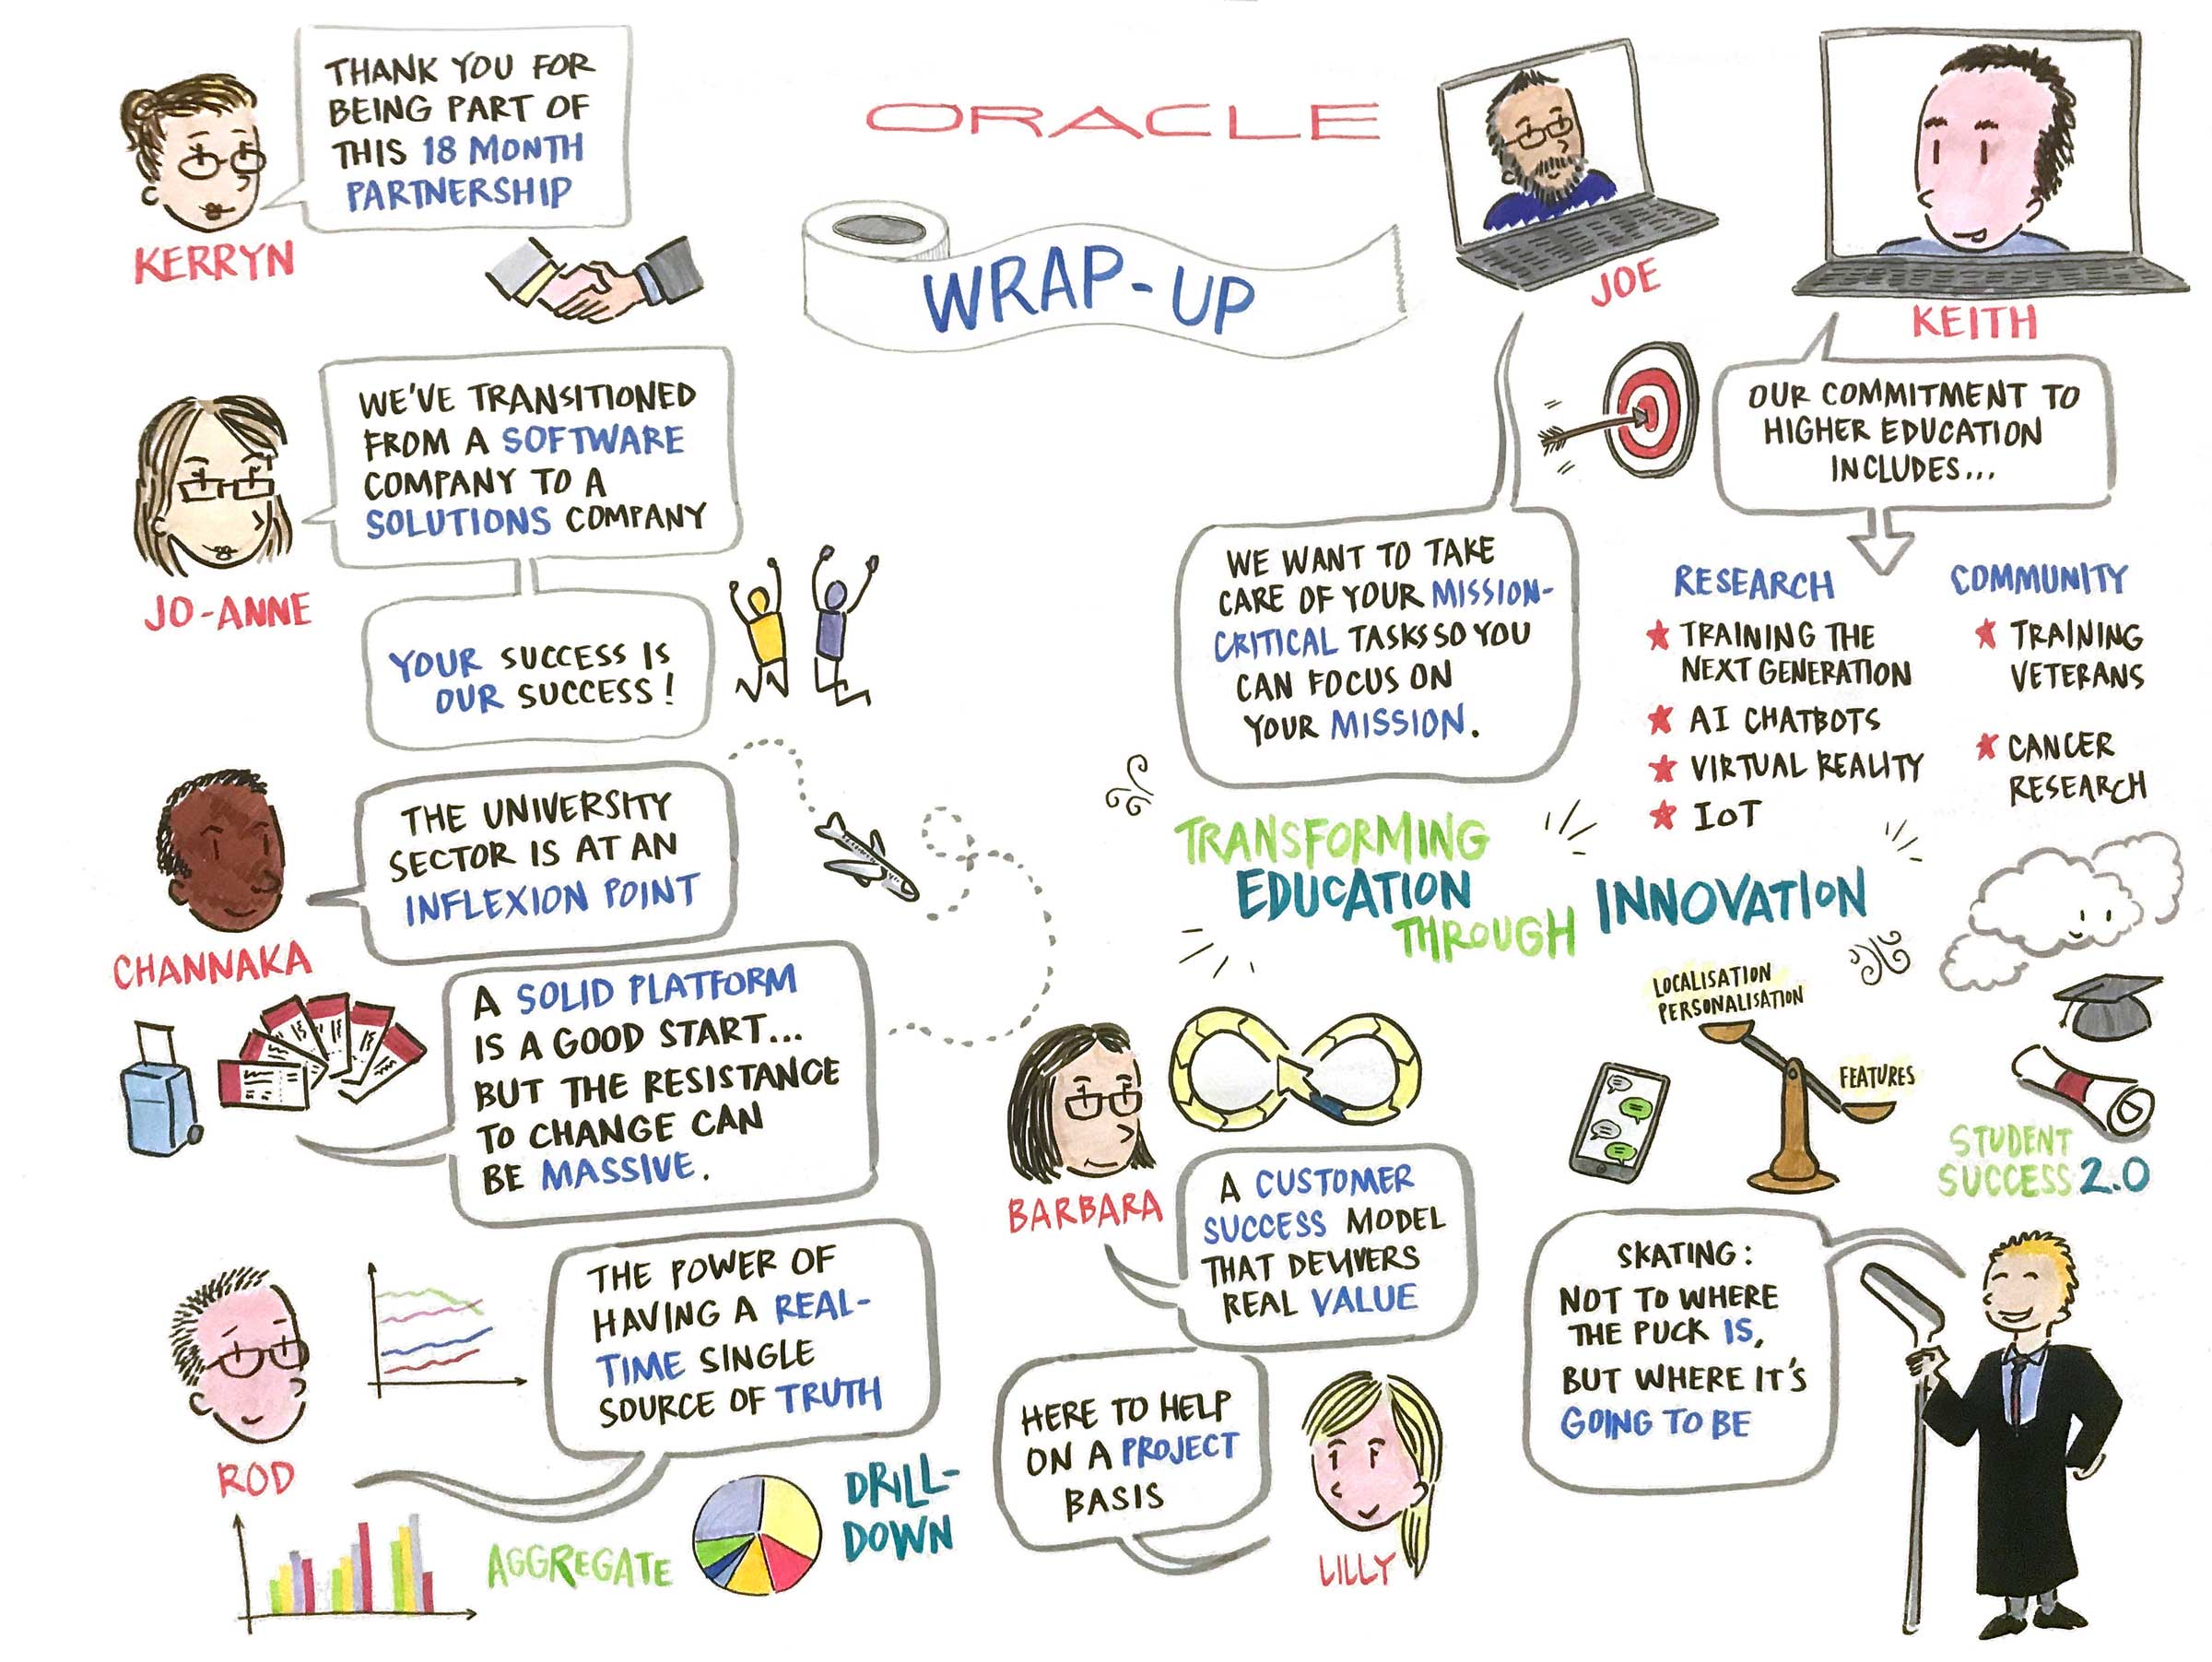 ORACLE
WRAP-UP
THANK YOU FOR
BEING PART OF
THIS 18 MONTH
PARTNERSHIP
KERRYN
WE'VE TRANSITIONED
FROM A SOFTWARE
COMPANY TO A
SOLUTIONS COMPANY
JO-ANNE
YOUR SUCCESS IS
OUR SUCCESS!
THE UNIVERSITY
SECTOR IS AT AN
INFLEXION POINT
CHANNAKA
A SOLID PLATFORM
IS A GOOD START...
BUT THE RESISTANCE
TO CHANGE CAN
BE MASSIVE.
THE POWER OF
HAVING A REAL-
TIME SINGLE
SOURCE OF TRUTH
ROD
AGGREGATE
DRILL-
DOWN
JOE
WE WANT TO TAKE
CARE OF YOUR MISSION-
CRITICAL TASKS SO YOU
CAN FOCUS ON
YOUR MISSION.
KEITH
OUR COMMITMENT TO
HIGHER EDUCATION
INCLUDES...
RESEARCH
TRAINING THE
NEXT GENERATION
AI CHATBOTS
VIRTUAL REALITY
IoT
COMMUNITY
TRAINING
VETERANS
CANCER
RESEARCH
TRANSFORMING
EDUCATION
THROUGH
INNOVATION
BARBARA
A CUSTOMER
SUCCESS MODEL
THAT DELIVERS
REAL VALUE
HERE TO HELP
ON A PROJECT
BASIS
LILLY
LOCALISATION
PERSONALISATION
FEATURES
STUDENT
SUCCESS 2.0
SKATING:
NOT TO WHERE
THE PUCK IS,
BUT WHERE IT'S
GOING TO BE